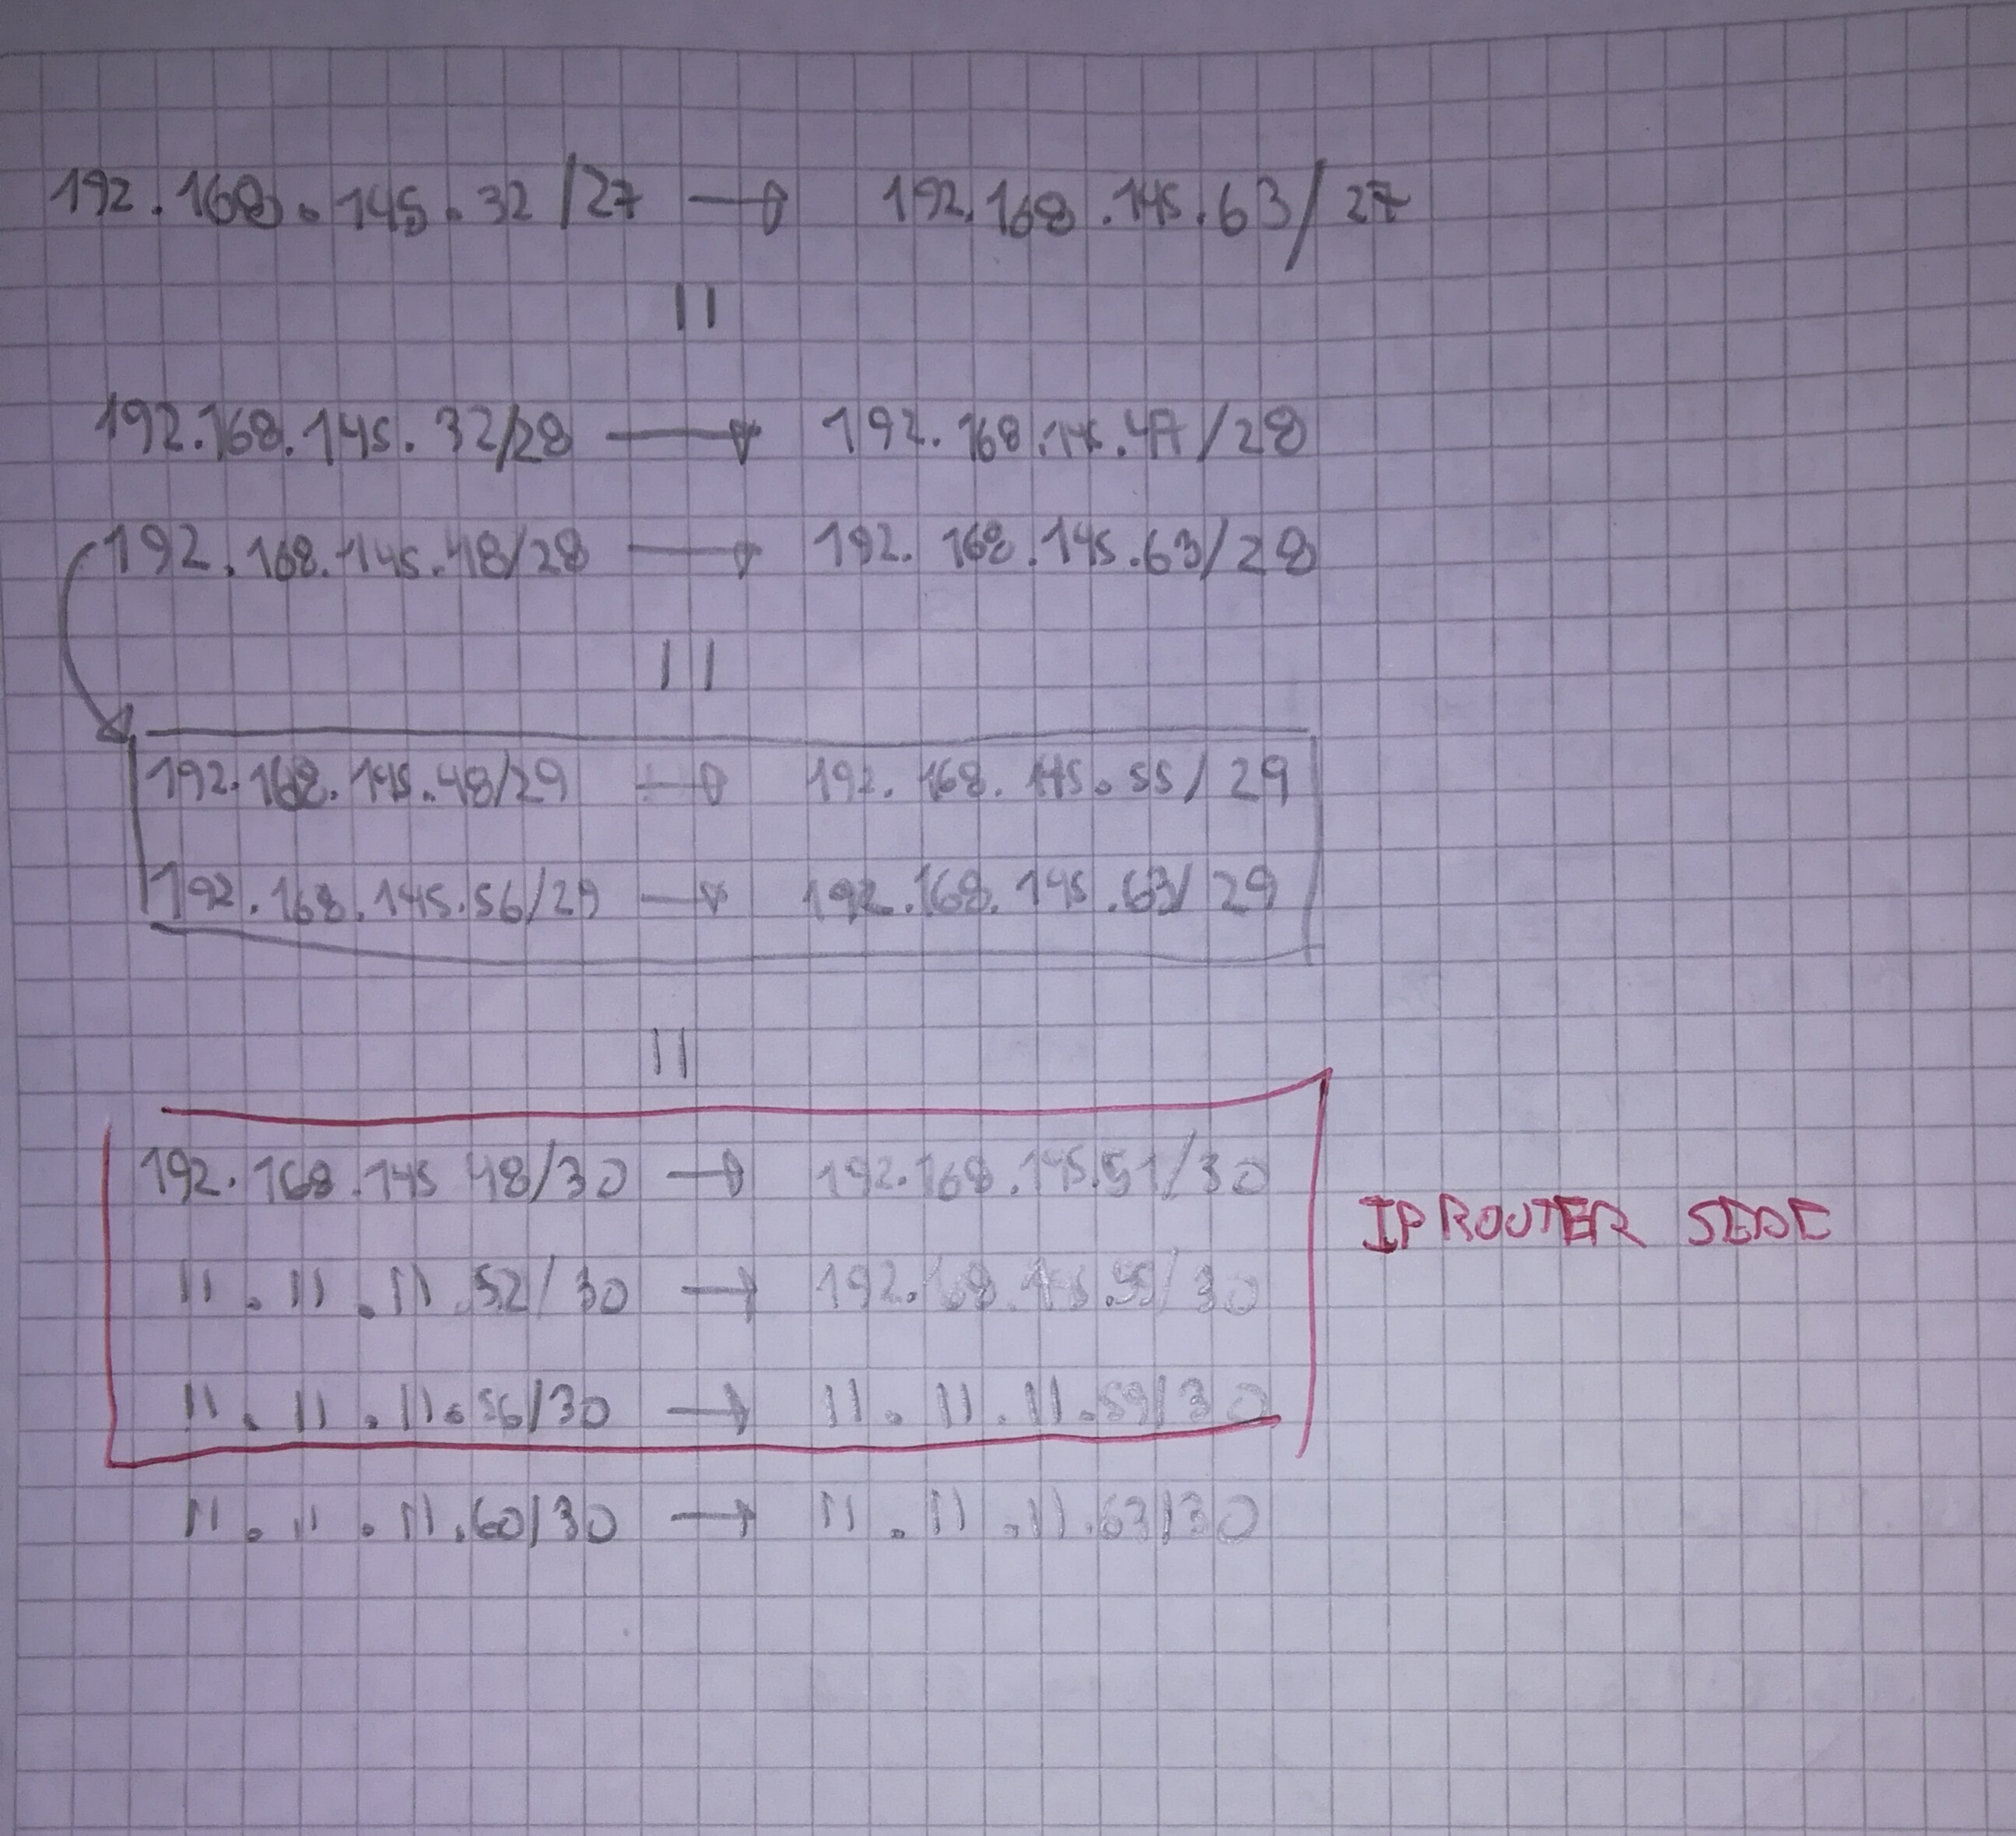 192.168.145.32/27 → 192.168.145.63/27
||
192.168.145.32/28 → 192.168.145.47/28
192.168.145.48/28 → 192.168.145.63/28
||
192.168.145.48/29 → 192.168.145.55/29
192.168.145.56/29 → 192.168.145.63/29
||
192.168.145 48/30 → 192.168.145.51/30
11.11.11.52/30 → 192.168.145.55/30
11.11.11.56/30 → 11.11.11.59/30
IP ROUTER SEDE
11.11.11.60/30 → 11.11.11.63/30